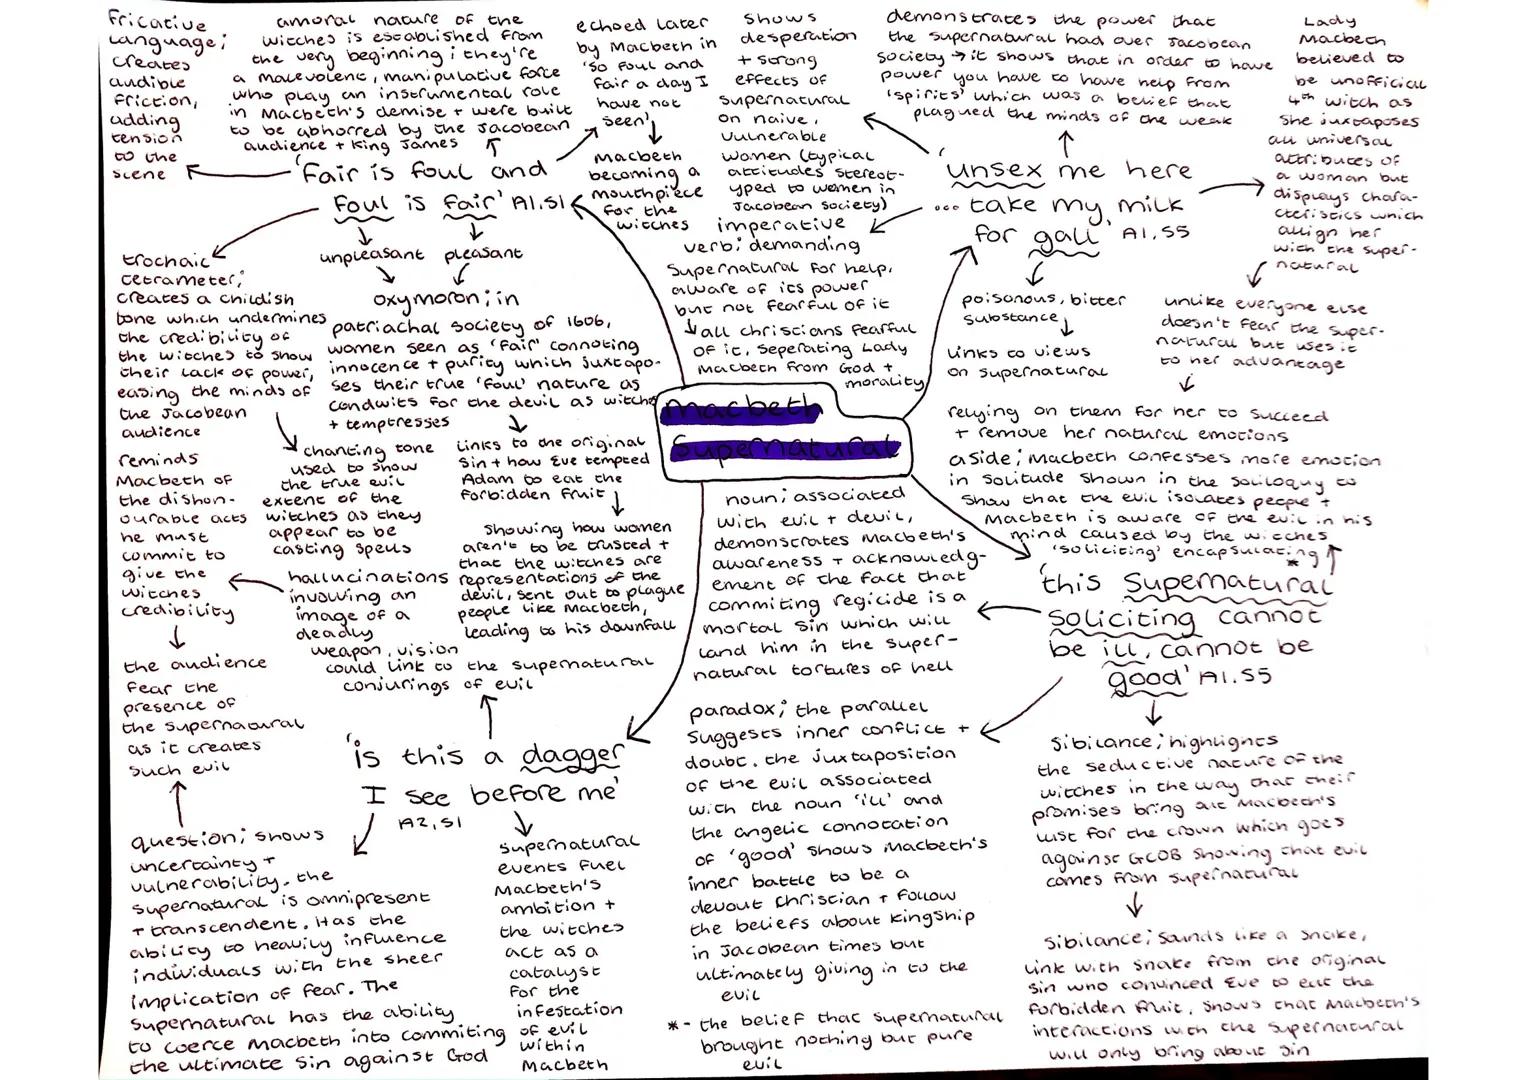 fricative
language;
creates
audible
friction,
adding
tension
to the
scene
amoral nature of the
witches is established from
the very beginning; they're
a malevolent, manipulative force
who play an instrumental role
in Macbeth's demise + were built
to be abhorred by the Jacobean
audience + King James
echoed later
by Macbeth in
'so foul and
fair a day I
have not
seen'
Macbeth
becoming a
mouthpiece
for the
witches
shows
desperation
+ strong
effects of
supernatural
on naive,
vulnerable
women (typical
attitudes stereot-
yped to women in
Jacobean society)
demonstrates the power that
the supernatural had over Jacobean
society → it shows that in order to have
power you have to have help from
'spirits' which was a belief that
plagued the minds of the weak
Lady
Macbeth
believed to
be unofficial
4th witch as
she juxtaposes
all universal
attributes of
a woman but
displays chara-
cteristics which
allign her
with the super-
natural
'Fair is foul and
foul is fair' A1,S1
unpleasant pleasant
'unsex me here
... take my milk
for gall' A1,S5
imperative
verb; demanding
supernatural for help,
aware of its power
but not fearful of it
all christians fearful
of it, seperating Lady
Macbeth from God +
morality
poisonous, bitter
substance
links to views
on supernatural
unlike everyone else
doesn't fear the super-
natural but uses it
to her advantage
relying on them for her to succeed
+ remove her natural emotions
trochaic
tetrameter;
creates a childish
tone which undermines
the credibility of
the witches to show
their lack of power,
easing the minds of
the Jacobean
audience
oxymoron; in
patriachal society of 1606,
women seen as 'fair' connoting
innocence + purity which juxtapo-
ses their true 'foul' nature as
conduits for the devil as witches
+ temptresses
chanting tone
used to show
the true evil
extent of the
witches as they
appear to be
casting spells
links to the original
sin + how Eve tempted
Adam to eat the
forbidden fruit
showing how women
aren't to be trusted +
that the witches are
representations of the
devil, sent out to plague
people like Macbeth,
leading to his downfall
Macbeth
Supernatural
aside; Macbeth confesses more emotion
in solitude shown in the soliloquy to
show that the evil isolates people +
Macbeth is aware of the evil in his
mind caused by the witches
'soliciting' encapsulating *
'this Supernatural
soliciting cannot
be ill, cannot be
good' A1.S5
noun; associated
with evil + devil,
demonstrates Macbeth's
awareness + acknowledg-
ement of the fact that
commiting regicide is a
mortal sin which will
land him in the super-
natural tortures of hell
reminds
Macbeth of
the dishon-
ourable acts
he must
commit to
give the
witches
credibility
the audience
fear the
presence of
the supernatural
as it creates
such evil
hallucinations
involving an
image of a
deadly
weapon, vision
could link to the supernatural
conjurings of evil
'is this a dagger
I see before me'
A2,S1
question; shows
uncertainty +
vulnerability. the
supernatural is omnipresent
+ transcendent. Has the
ability to heavily influence
individuals with the sheer
implication of fear. The
supernatural has the ability
to coerce Macbeth into commiting
the ultimate sin against God
supernatural
events fuel
Macbeth's
ambition +
the witches
act as a
catalyst
for the
infestation
of evil
within
Macbeth
paradox; the parallel
suggests inner conflict +
doubt. the juxtaposition
of the evil associated
with the noun 'ill' and
the angelic connotation
of 'good' shows Macbeth's
inner battle to be a
devout christian + follow
the beliefs about kingship
in Jacobean times but
ultimately giving in to the
evil
* - the belief that supernatural
brought nothing but pure
evil
sibilance; highlights
the seductive nature of the
witches in the way that their
promises bring out Macbeth's
lust for the crown which goes
against GCOB showing that evil
comes from supernatural
sibilance; sounds like a snake,
link with snake from the original
sin who convinced Eve to eat the
forbidden fruit, shows that Macbeth's
interactions with the supernatural
will only bring about sin